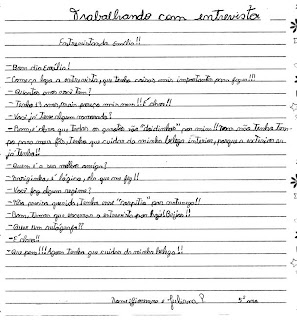 Trabalhando com entrevista
Entrevistando Emília!!
- Bom dia Emília!
- Começa logo a entrevista, que tenho coisas mais importantes para fazer!!!
- Quantos anos você tem?
- Tenho 13 anos, pouco mais !! É claro!!
- Você já teve algum namorado?
- Bom, é claro que todos os garotos são "doidinhos" por mim!! mas não tenho tem-
po para isso, tenho que cuidar da minha beleza interior, porque a exterior eu
já tenho!!
- Quem é o seu melhor amigo?
- Narizinho, é lógico, ela que me fez!!
- Você faz algum regime?
- Não preciso querido, tenho esse " " por natureza!!
- Bom, temos que encerrar a entrevista por hoje! Beijos!!
- Quer um autógrafo?
- É claro!!
- que pena!!! Agora tenho que cuidar da minha beleza!!
Nome: e Juliana 5º ano